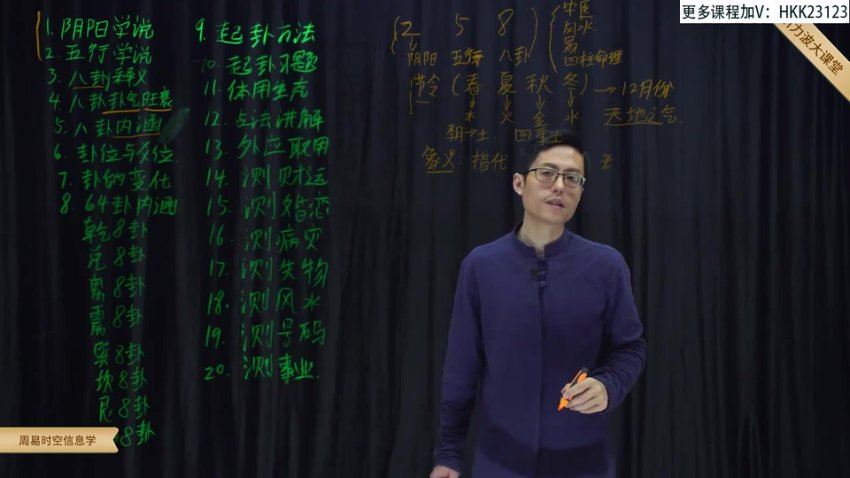 更多课程加V：HKK23123
力波大课堂
1. 阴阳学说
2. 五行学说
3. 八卦释义
4. 八卦卦气旺衰
5. 八卦内涵
6. 卦位与爻位
7. 卦的变化
8. 64卦内涵
乾8卦
兑8卦
离8卦
震8卦
巽8卦
坎8卦
艮8卦
8卦
9. 起卦方法
10. 起卦习题
11. 体用生克
12. 占法讲解
13. 外应取用
14. 测财运
15. 测婚恋
16. 测病灾
17. 测失物
18. 测风水
19. 测号码
20. 测事业.
2 5 8
阴阳 五行 八卦
中医
风水
易
四柱命理
节令（春 夏 秋 冬）→12月份
火 金 水 天地之气
象义：指代
周易时空信息学